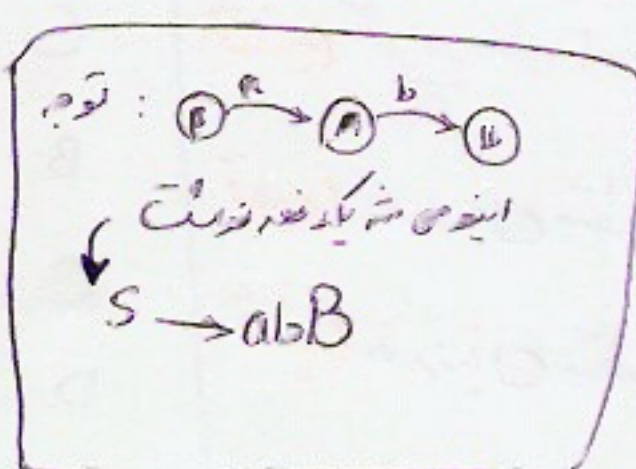 توجه : a b
اینو می شه یکدفعه نوشت
S → abB